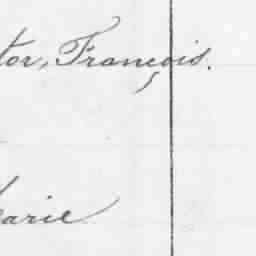 tor, François.
arie